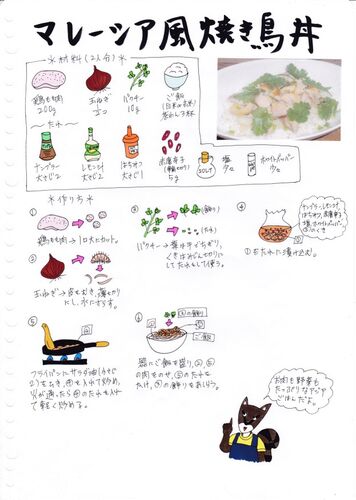 マレーシア風焼き鳥丼
材料(2人分)
鶏もも肉
200g
玉ねぎ
パクチー
10g
ご飯
たれ
ナンプラー
大さじ2
レモン汁
大さじ2
はちみつ
大さじ1
赤唐辛子
(輪切り)
5g
SALT
塩
少々
ホワイトペッパー
少々
作り方
①
鶏もも肉→1口大にカット。
②
玉ねぎ→皮をむき、薄切り
にし、水にさらす。
③
(飾り)
(たれ)
パクチー→葉は手でちぎり、
くきはみじん切りに
してたれとして使う。
④
ナンプラー、レモン汁
はちみつ、赤唐辛子
塩、ホワイトペッパー
①をたれに漬け込む。
⑤
フライパンにサラダ油(大さじ
2)をひき、④を入れて炒め、
火が通ったら④のたれを入れ
て軽く炒める。
⑥
③の飾り
器にご飯を盛り、②、⑤
の肉をのせ、⑤のたれを
かけ、③の飾りをあしらう。
お肉も野菜も
たっぷりなアジア
ごはんだよ。